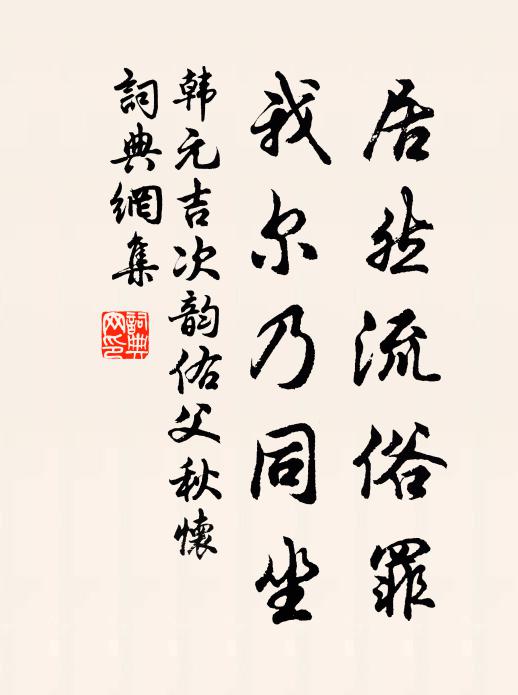 居然流俗罪
我尔乃同坐
韩元吉次韵佑父秋懷
詞典網集
詞典
网印